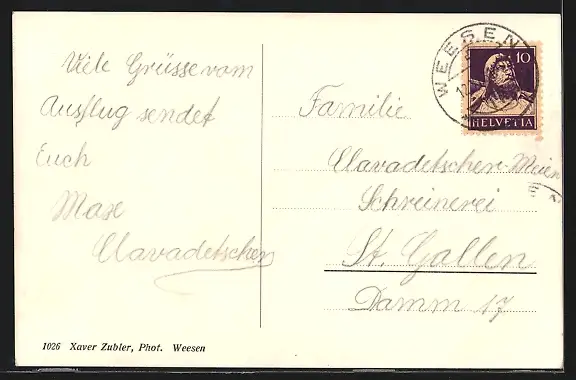 Viele Grüsse vom
Ausflug sendet
Euch
Clavadetscher
1026 Xaver Zubler, Phot. Weesen
WEESEN
10
HELVETIA
Familie
Clavadetscher-Meier
Schreinerei
St. Gallen
Damm 17